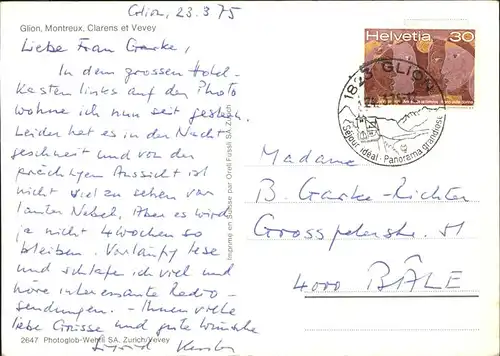 Glion, 23.3.75
Glion, Montreux, Clarens et Vevey
Liebe Frau Gerke,
In dem grossen Hotel-
kasten links auf der Photo
wohne ich nun seit gestern.
Leider hat es in der Nacht
geschneit und von der
prächtigen Aussicht ist
nicht viel zu sehen vor
lauter Nebel. Aber es wird
ja nicht 4 Wochen so
bleiben. Vorläufig lese
und schlafe ich viel und
höre interessante Radio-
sendungen. – Ihnen viele
liebe Grüsse und gute Wünsche
2647 Photoglob-Wehrli SA. Zürich/Vevey
Imprimé en Suisse par Orell Füssli SA, Zürich
Helvetia 30
1823 GLION
Séjour idéal · Panorama grandiose
Madame
B. Gerke-Richter
Grosspeterstr. 51
4000 BÂLE